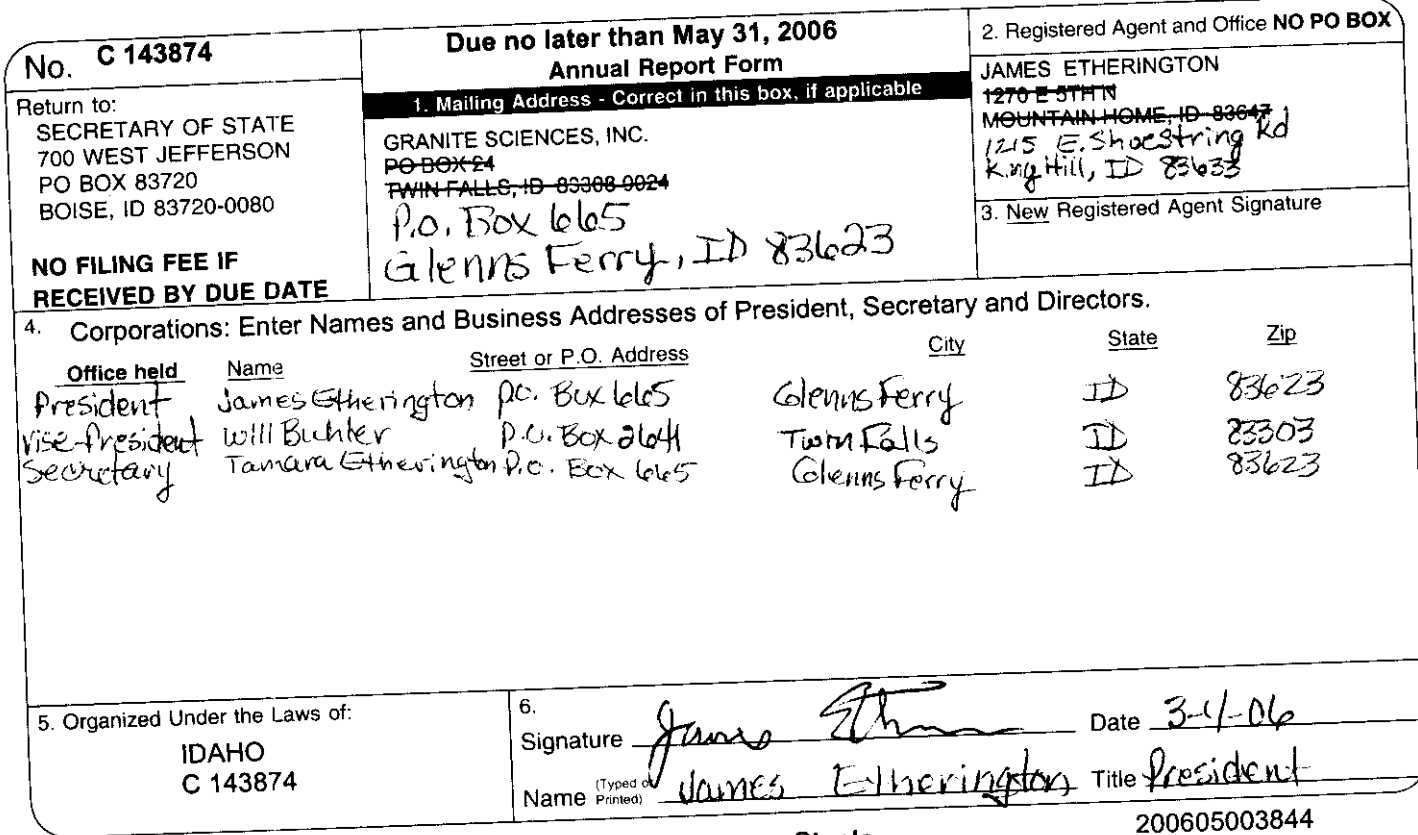 No. C 143874
Return to:
SECRETARY OF STATE
700 WEST JEFFERSON
PO BOX 83720
BOISE, ID 83720-0080
NO FILING FEE IF
RECEIVED BY DUE DATE
Due no later than May 31, 2006
Annual Report Form
1. Mailing Address - Correct in this box, if applicable
GRANITE SCIENCES, INC.
PO BOX 24
TWIN FALLS, ID 83308-0024
P.O. Box 665
Glenns Ferry, ID 83623
2. Registered Agent and Office NO PO BOX
JAMES ETHERINGTON
1270 E 5TH N
MOUNTAIN HOME, ID 83647
1215 E. Shoestring Rd
King Hill, ID 83633
3. New Registered Agent Signature
4. Corporations: Enter Names and Business Addresses of President, Secretary and Directors.
Office held Name Street or P.O. Address City State Zip
President James Etherington P.O. Box 665 Glenns Ferry ID 83623
Vise-President Will Buhler P.O. Box 2641 Twin Falls ID 83303
Secretary Tamara Etherington P.O. Box 665 Glenns Ferry ID 83623
5. Organized Under the Laws of:
IDAHO
C 143874
6.
Signature James Date
Name (Typed or Printed) James Etherington Title President
200605003844